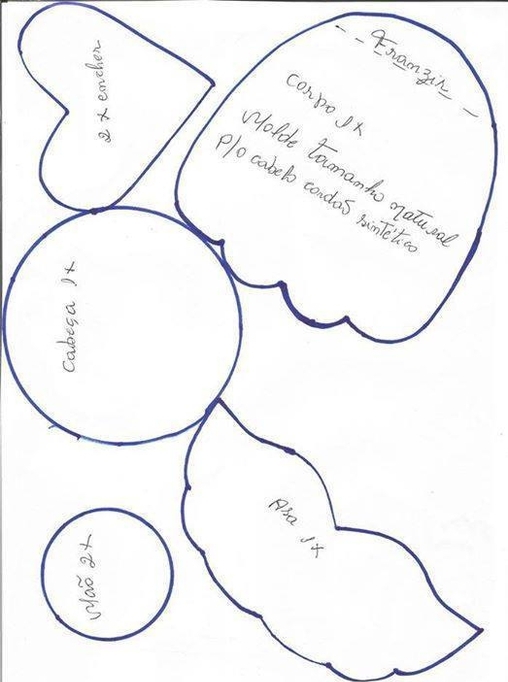 2x encher
- - Franzir -
corpo 1x
Molde tamanho natural
p/o cabelo cordão sintético
Cabeça 1x
Asa 1x
Mão 2x